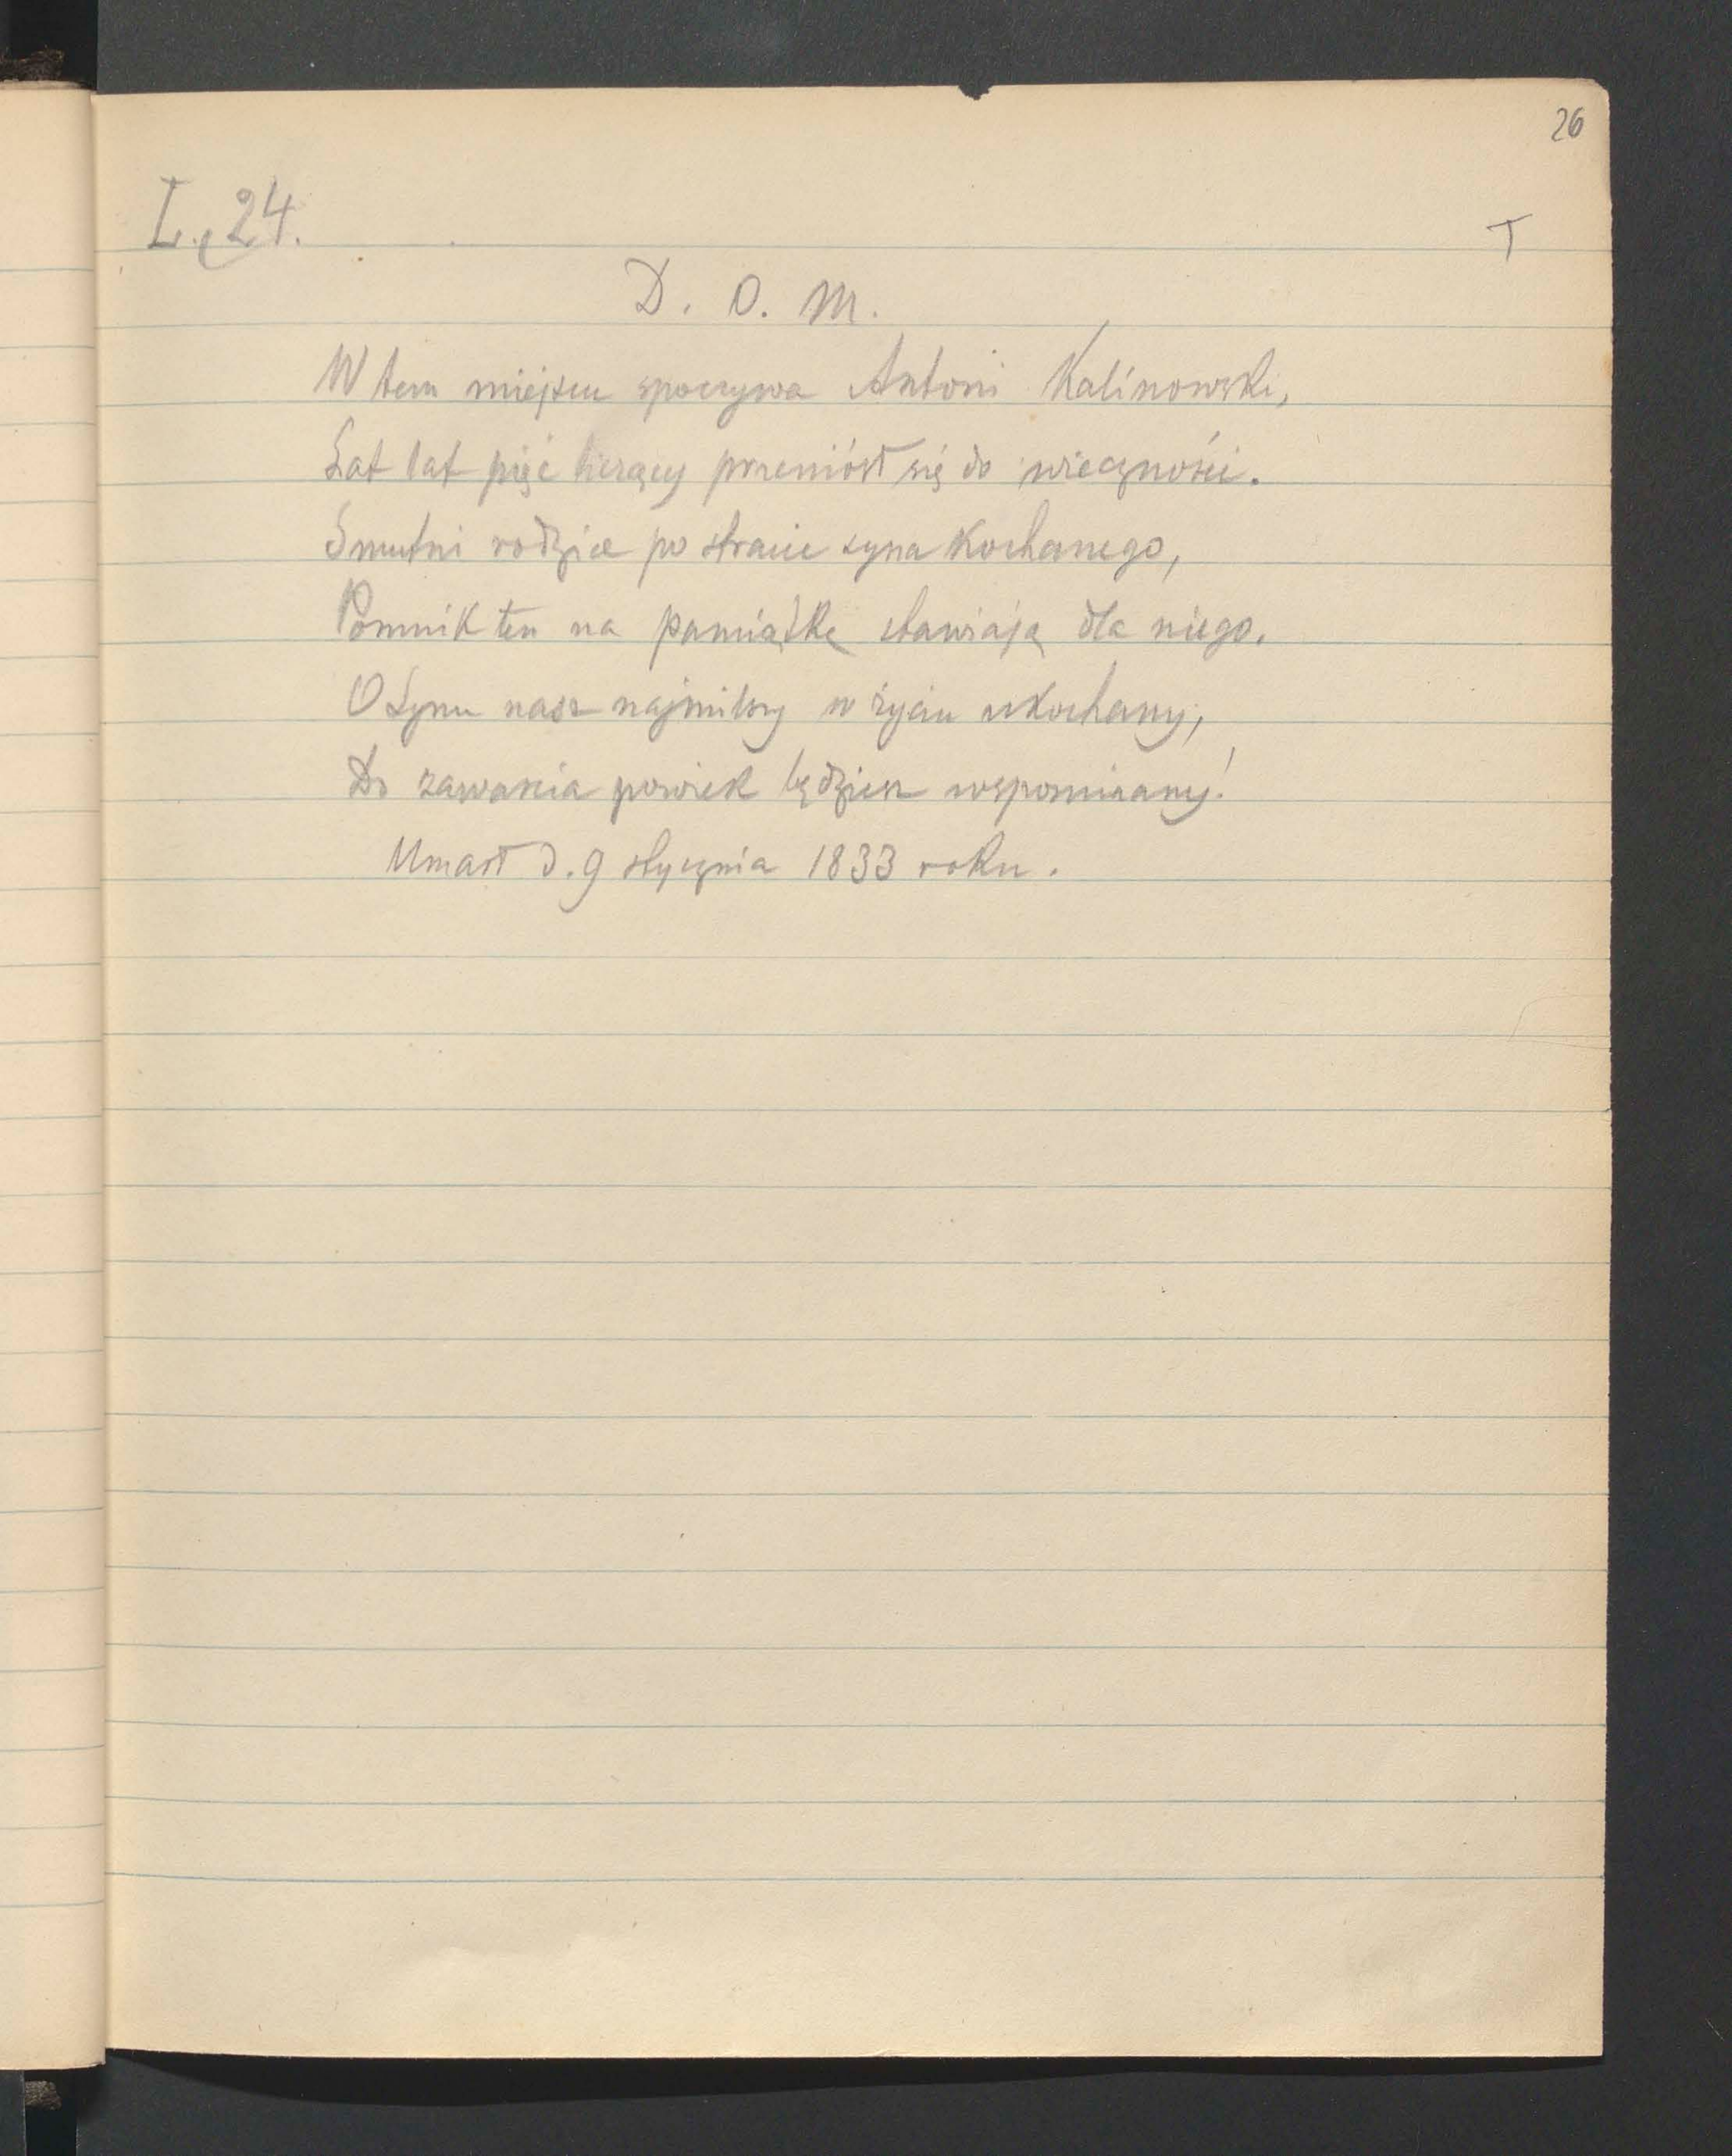 26
L. 24.
T
D. O. M.
W tem miejscu spoczywa Antoni Kalinowski,
Lat lat pięć liczący przeniósł się do wieczności.
Smutni rodzice po stracie syna kochanego,
Pomnik ten na pamiątkę stawiają dla niego.
O Synu nasz najmilszy w życiu ukochany,
Do zawarcia powiek będziesz wspominany!
Umarł d. 9 stycznia 1833 roku.